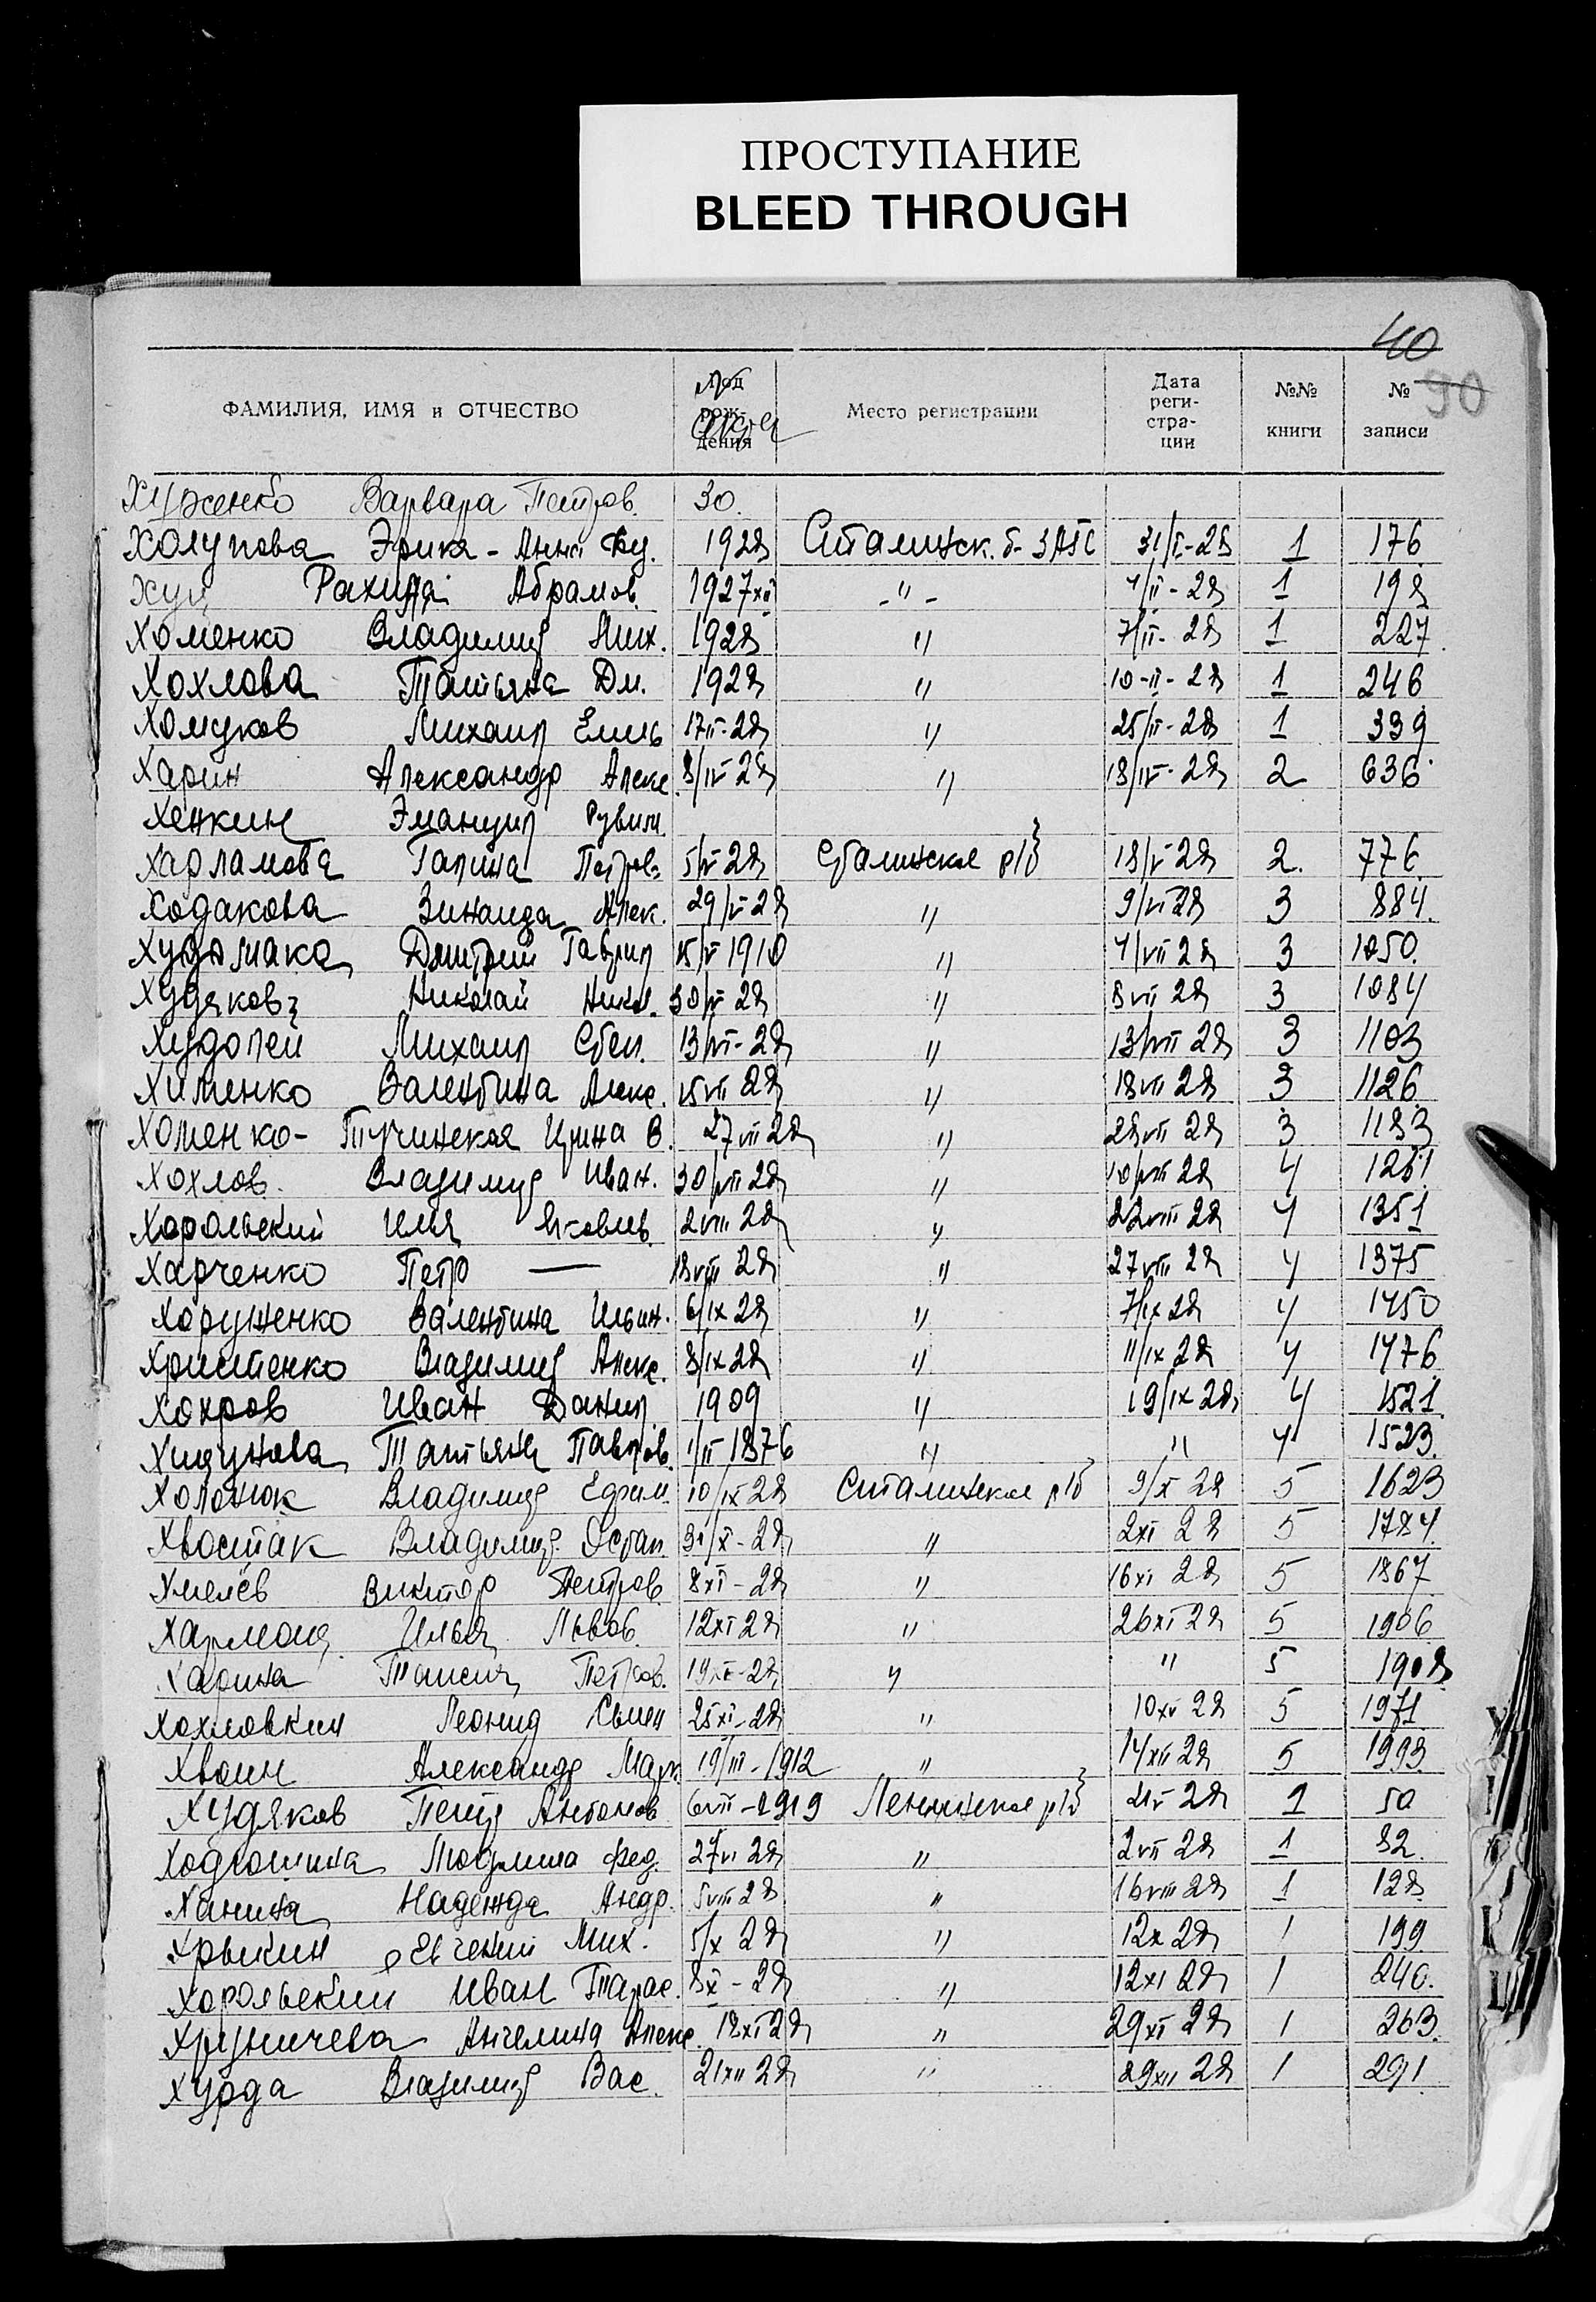 ПРОСТУПАНИЕ
BLEED THROUGH
40
90
ФАМИЛИЯ, ИМЯ и ОТЧЕСТВО Год рождения Место регистрации Дата регистрации №№ книги № записи
Хуженко Варвара Петров. 30.
Холупова Эрика - Анна 1928 Сталинск. б. ЗАГС 31/I-28 1 176
Рахиля Абрамов. 1927 XII -"- 4/II-28 1 198
Хоменко Владимир Мих. 1928 " 7/II-28 1 227
Хохлова Татьяна Дм. 1928 " 10-II-28 1 246
Хомуков Михаил Емель 17II-28 " 25/II-28 1 339
Харин Александр Алекс. 8/IV 28 " 18/IV-28 2 636
Хенкин Эмануил Рувим.
Харламова Галина Петров. 5/V 28 Сталинское р/б 18/V 28 2. 776
Ходакова Зинаида Алек. 29/V 28 " 9/VI 28 3 884.
Дмитрий Гаврил 15/V 1910 " 4/VII 28 3 1050.
Худякова Николай Никол. 30/VI 28 " 8 VII 28 3 1084
Худолей Михаил Степ. 13/VI-28 " 13/VII 28 3 1103
Хименко Валентина Алекс. 15 VII 28 " 18 VII 28 3 1126
Хоменко-Тучинская Ирина В. 27 VII 28 " 28 VII 28 3 1183
Хохлов. Владимир Иван. 30/VII 28 " 10/VIII 28 4 1261
Хорольский Илья Яковль. 2 VIII 28 " 22 VIII 28 4 1351
Харченко Петр — 18 VIII 28 " 27 VIII 28 4 1375
Хоруженко Валентина Ильин. 6/IX 28 " 7/IX 28 4 1450
Христенко Владимир Алекс. 8/IX 28 " 11/IX 28 4 1476
Хохров Иван Данил. 1909 " 19/IX 28 4 1521
Татьяна Павлов. 1/II 1876 " " 4 1523.
Холонюк Владимир Ефим. 10/IX 28 Сталинское р/б 9/X 28 5 1623
Хвостак Владимир Остап. 31/X-28 " 2 XI 28 5 1784.
Хмелёв Виктор Петров. 8 XI-28 " 16 XI 28 5 1867
Илья Львов. 12 XI 28 " 26 XI 28 5 1906
Харина Таисия Петров. 19 XI-28 " " 5 1908
Хохловкин Леонид Семен 25 XI-28 " 10 XII 28 5 1971
Хвоин Александр Марк 19/III-1912 " 14 XII 28 5 1993.
Худяков Петр Антонов 6 VII-1919 Ленинское р/б 28 1 50
Ходюшина Людмила Фед. 27 VI 28 " 2 VII 28 1 82.
Ханина Надежда Андр. 5 VIII 28 " 16 VIII 28 1 128
Хрыкин Евгений Мих. 5/X 28 " 12 X 28 1 199
Хорольский Иван Тарас. 8 X-28 " 12 XI 28 1 240.
Хруничева Ангелина Алекс. 18 XI 28 " 29 XI 28 1 263.
Хурда Владимир Вас. 21 XII 28 " 29 XII 28 1 291.